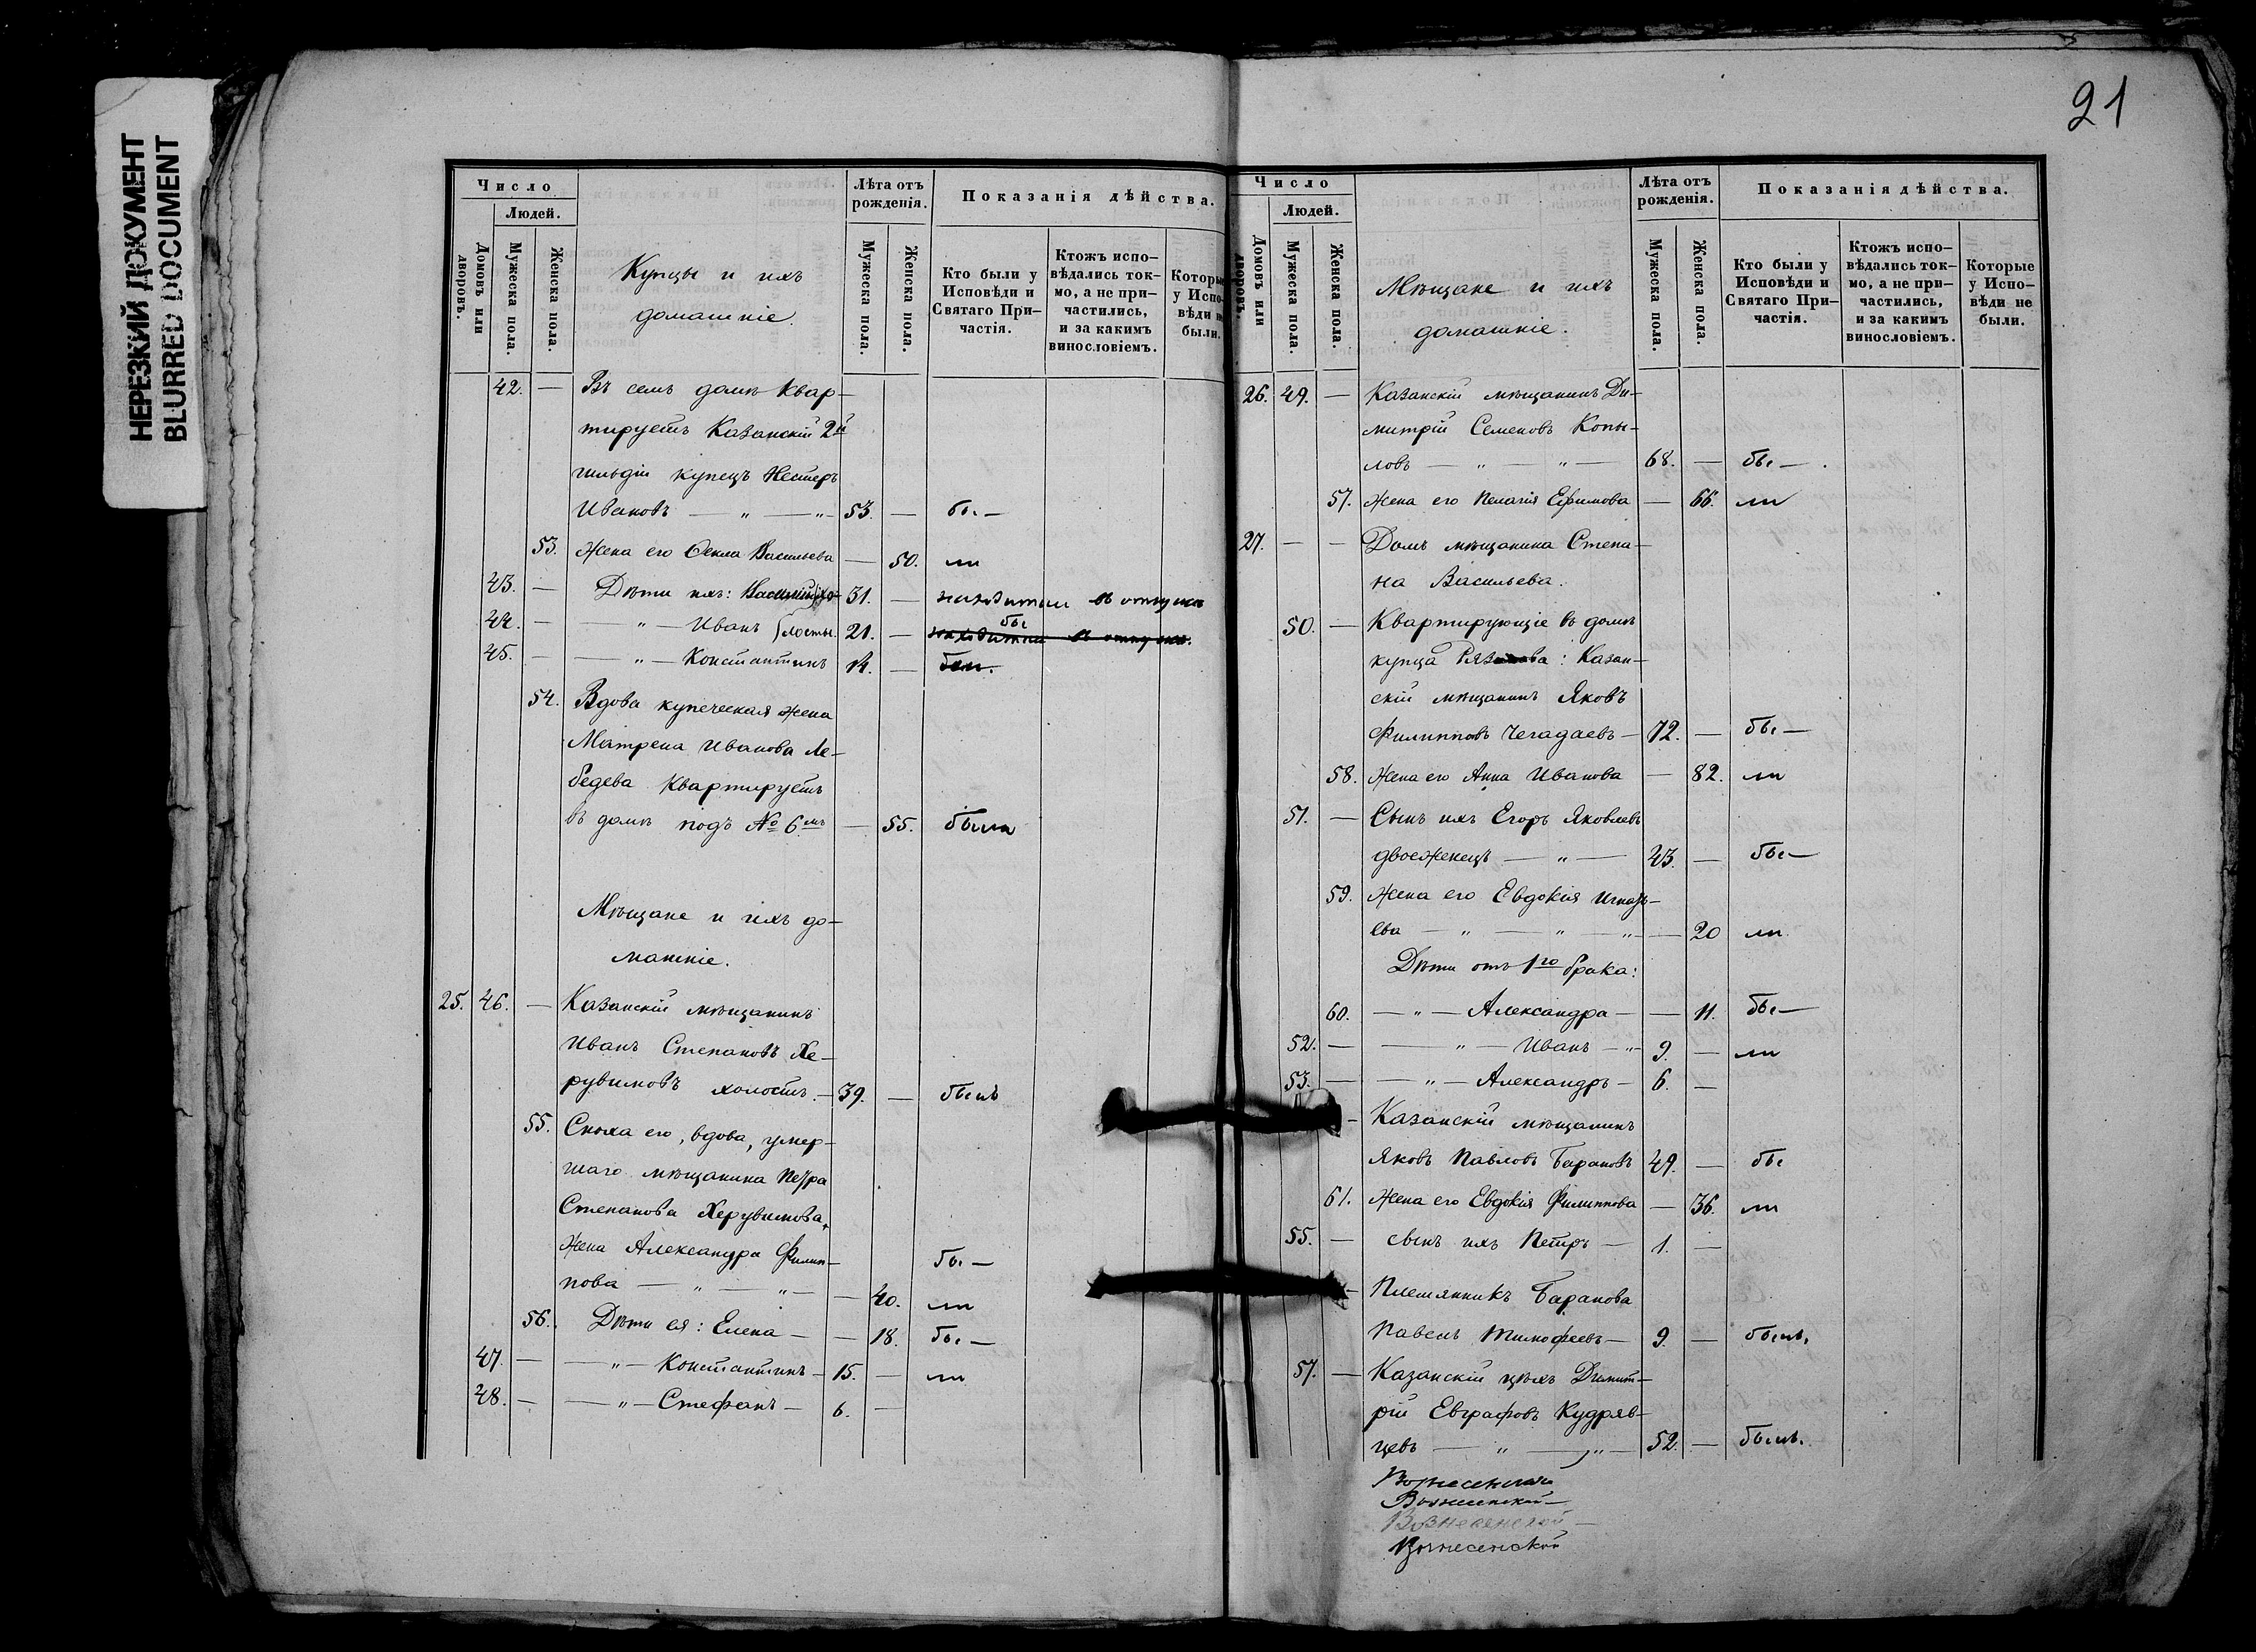 НЕРЕЗКИЙ ДОКУМЕНТ
BLURRED DOCUMENT
21
Число
Людей.
Домовъ или дворовъ.
Мужеска пола.
Женска пола.
Купцы и ихъ
домашніе.
Лѣта отъ рожденія.
Мужеска пола.
Женска пола.
Показанія дѣйства.
Кто были у Исповѣди и Святаго Причастія.
Ктожъ исповѣдались токмо, а не причастились, и за какимъ винословіемъ.
Которые у Исповѣди не были.
42. — Въ семъ домѣ квар-
тируетъ Казанскій 2й
гильдіи купецъ Нестеръ
Ивановъ — „ — „ — 53. — бы —
53. Жена его Фекла Васильева — 50. ли
43. — Дѣти ихъ: 31. — находится въ отпускѣ
44. — — „ — Иванъ 21. — бы
45. — — „ — Константинъ 14. — были.
54. Вдова купеческая жена
Матрена Иванова Ле-
бедева квартируетъ
въ домѣ подъ № 6мъ — 55. была
Мѣщане и ихъ до-
машніе.
25. 46. — Казанскій мѣщанинъ
Иванъ Степановъ Хе-
рувимовъ холостъ. — 39. — былъ
55. Сноха его, вдова, умер-
шаго мѣщанина Петра
Степанова Херувимова,
жена Александра Филип- бы —
пова — „ — „ — — 40. ли
56. Дѣти ея: Елена — — 18. бы —
47. — — „ — Константинъ — 15. — ли
48. — — „ — Стефанъ — 6. —
Число
Людей.
Домовъ или дворовъ.
Мужеска пола.
Женска пола.
Мѣщане и ихъ
домашніе.
Лѣта отъ рожденія.
Мужеска пола.
Женска пола.
Показанія дѣйства.
Кто были у Исповѣди и Святаго Причастія.
Ктожъ исповѣдались токмо, а не причастились, и за какимъ винословіемъ.
Которые у Исповѣди не были.
26. 49. — Казанскій мѣщанинъ Ди-
митрій Семеновъ Копы-
ловъ — „ — „ — 68. — бы —.
57. Жена его Пелагія Ефимова — 66. ли
27. — — Домъ мѣщанина Степа-
на Васильева.
50. — Квартирующіе въ домѣ
купца : Казан-
скій мѣщанинъ Яковъ
Филипповъ Чегадаевъ — 72. — бы —
58. Жена его Анна Иванова — 82. ли
51. — Сынъ ихъ Егоръ Яковлевъ
двоеженецъ — „ — 43. — бы —
59. Жена его Евдокія Игнать-
ева — „ — „ — „ — — 20 ли
Дѣти отъ 1го брака:
60. — „ — Александра — — 11. бы —
52. — — „ — Иванъ — „ — 9. — ли
53. — — „ — Александръ — 6. —
— Казанскій мѣщанинъ
Яковъ Павловъ Барановъ 49. — бы
61. Жена его Евдокія Филиппова — 36. ли
55. — сынъ ихъ Петръ — 1. —
— Племянникъ Баранова
Павелъ Тимофеевъ — 9. — былъ.
57. — Казанскій цѣхъ Димит-
рій Евграфовъ Кудряв-
цевъ — „ — „ — 52. — былъ.
Вознесенской
Вознесенской —
Вознесенской —
Вознесенской